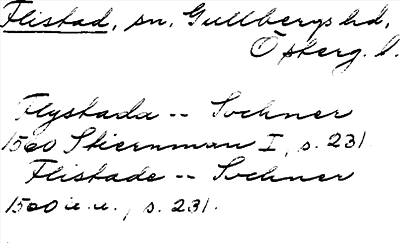 Flistad, sn, Gullbergs hd,
Österg. l.
Flystada -- Sochner
1500 Stiernman I, s. 231.
Flistade -- Sochner
1500 u.u., s. 231.